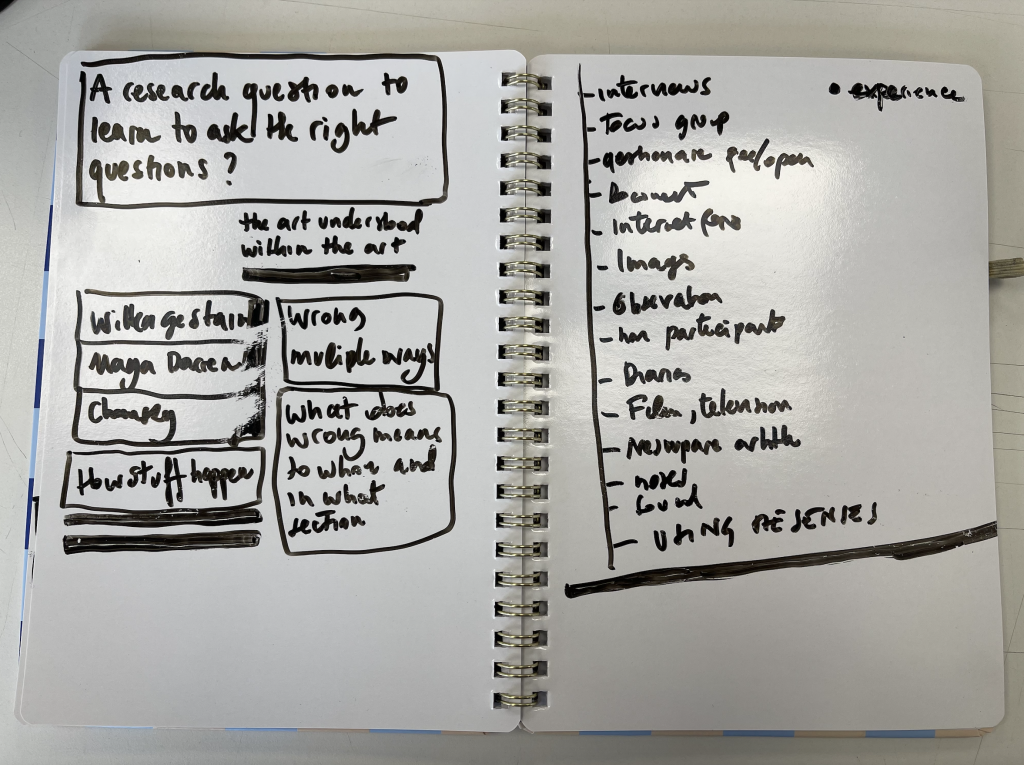 A research question to
learn to ask the right
questions ?
the art understood
within the art
Wittengestain
Maya Darren
Chomsky
How stuff happen
Wrong
multiple ways
What does
wrong means
to whom and
in what
section
- interviews
- focus group
- open
- Document
- Internet
- Images
- Observation
- non participant
- Diaries
- Film, television
- notes
- Sound
- USING
• experience